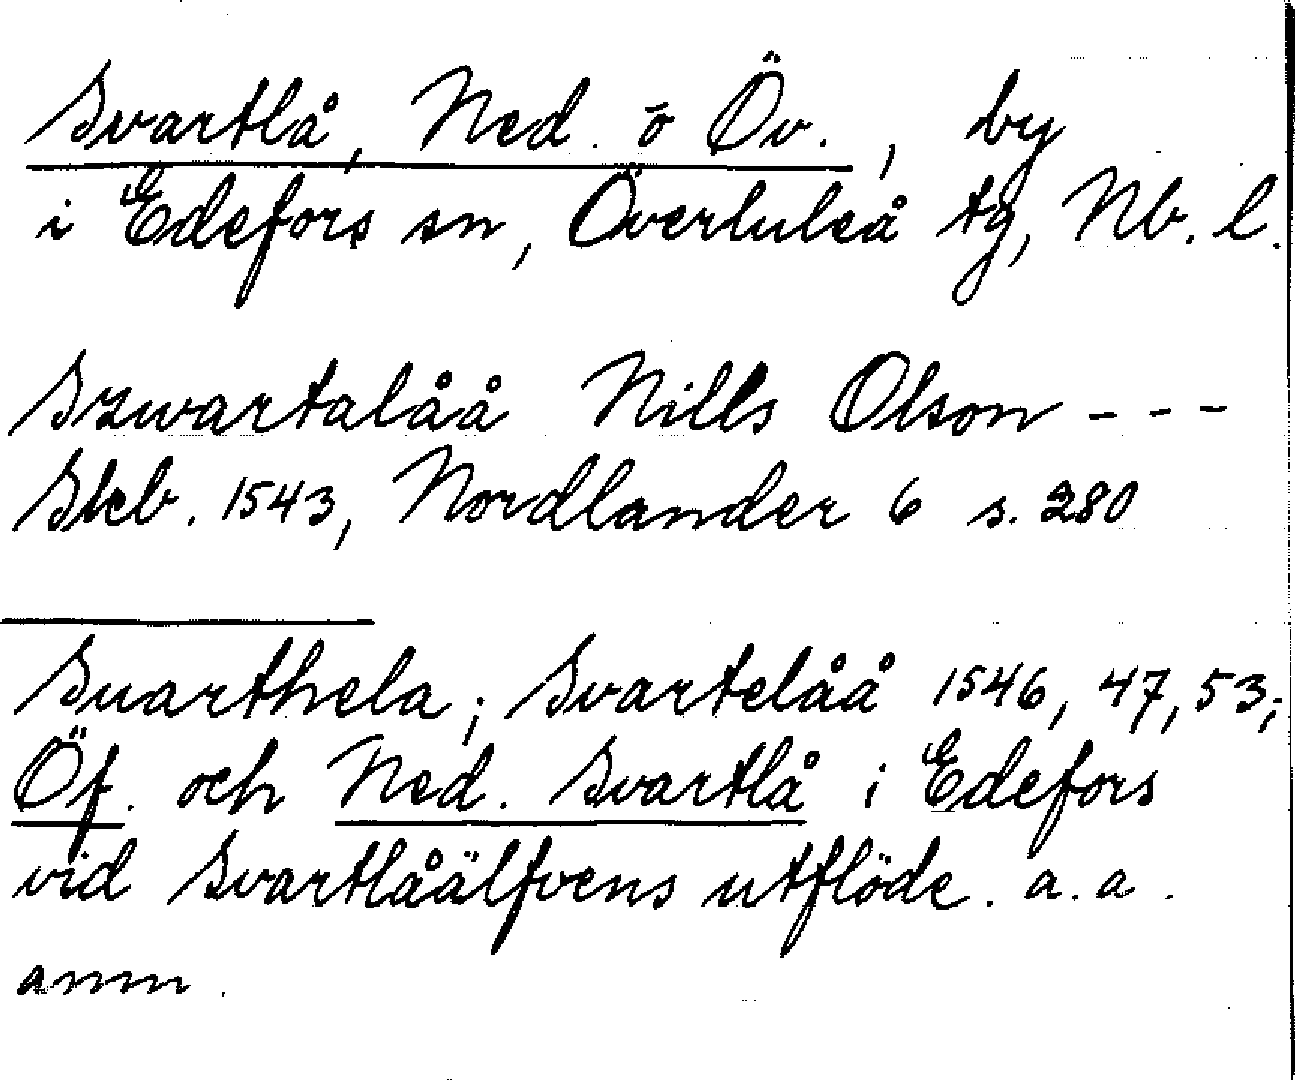 Svartlå, Ned. o Öv., by
i Edefors sn, Överluleå tg, Nb. l.
Szwartalåå Nills Olson - - -
Skb. 1543, Nordlander 6 s. 280
Suarthela; Svartelåå 1546, 47, 53;
Öf. och Ned. Svartlå i Edefors
vid Svartlåälfvens utflöde. a. a.
anm.